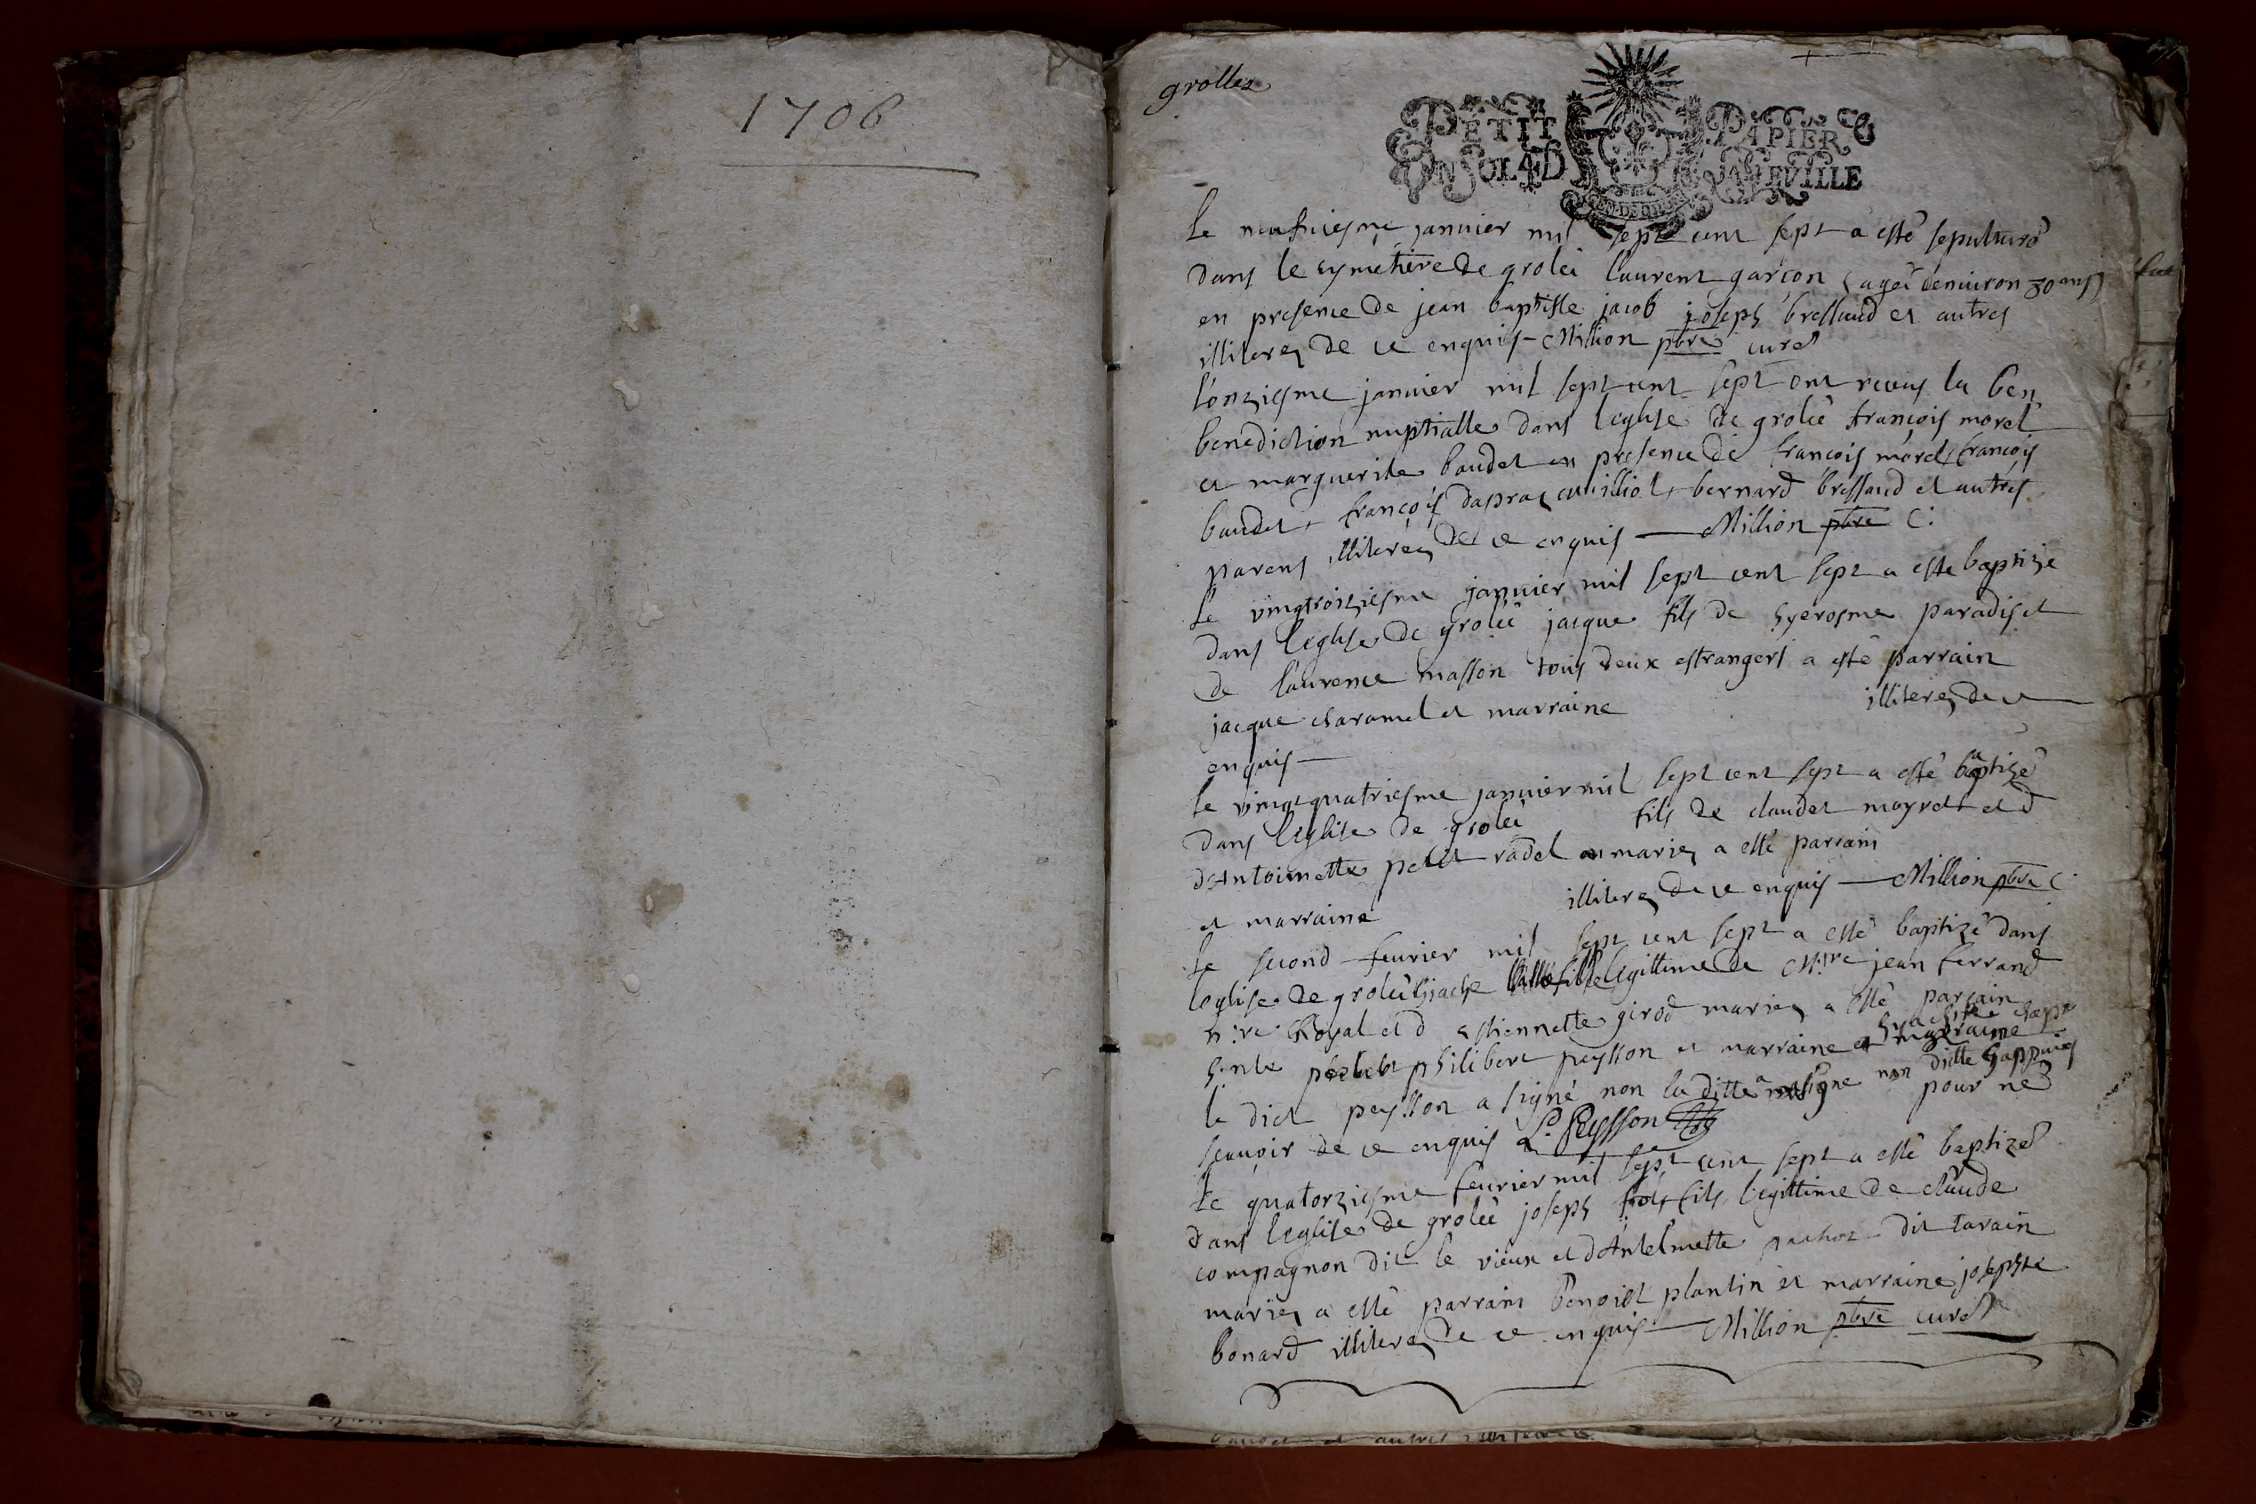 1706
grolle
PETIT PAPIER
UN SOL 4 D LA FEVILLE
Le neufviesme janvier mil sept cent sept a esté sepulturé
dans le cymetiere de grolei laurent garçon (agé denviron 30 ans)
en presence de jean baptiste jacob joseph bressaud et autres
illiterez de ce enquis Million pbre curé
l'onziesme janvier mil sept cent sept ont receus la ben
benediction nuptialle dans leglise de groleé francois morel
et marguerite baudet en presence de francois morel, francois
baudet, françois dapraz cuillot, bernard bressaud et autres
parens illiterez de ce enquis Million pbre C:
Le vingtroiziesme janvier mil sept cent sept a este baptizé
dans leglise de groleé jacque fils de hyerosme paradis et
de laurence masson tous deux estrangers a esté parrain
jacque charamel et marraine illiterez de ce
enquis
le vingtquatriesme janvier mil sept cent sept a esté baptizé
dans leglise de grolei fils de claudet mayret et d
dAntoinette petit radel mariez a esté parrain
et marraine illiterez de ce enquis Million pbre C:
Le second fevrier mil sept cent sept a esté baptizé dans
leglise de groleé fille legittime de Mtre jean ferrand
n:re Royal et d estiennette girod mariez a esté parrain
philibert peysson et marraine marraine
le dict peysson a signé non la ditte pour ne
scavoir de ce enquis L. Peysson
Le quatorziesme fevrier mil sept cent sept a esté baptizé
dans leglise de groleé joseph fils legittime de claude
compagnon dit le vieux et dAntelmette pachot dit tarain
mariez a esté parrain benoist plantin et marraine josephte
bonard illiterez de ce enquis Million pbre curé